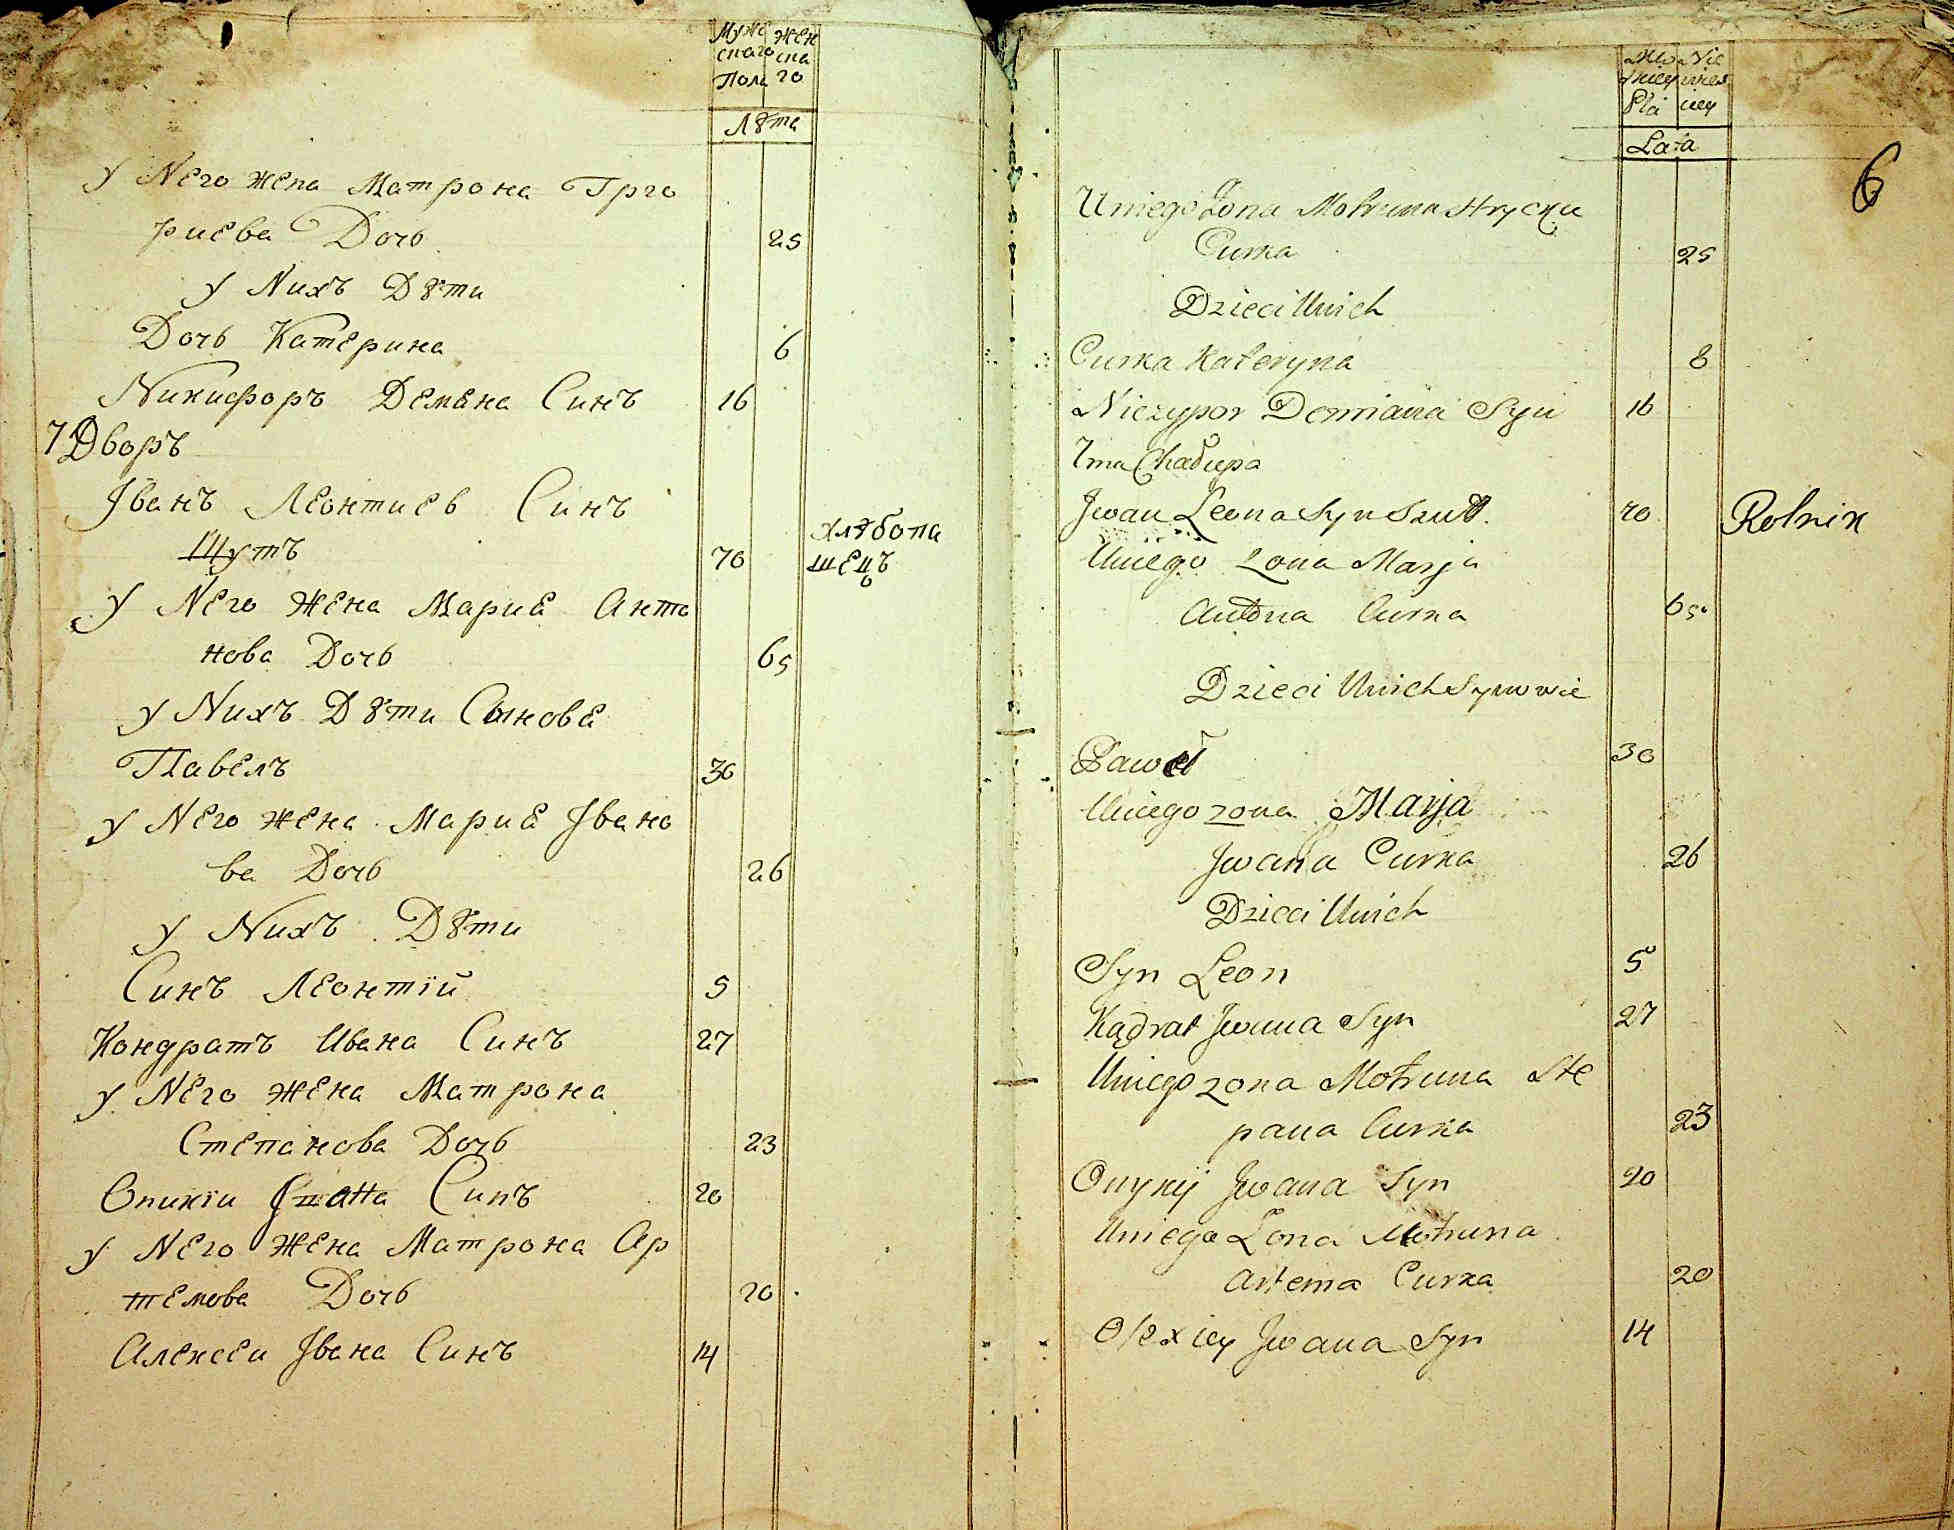 Муже Жен
скаго ска
Пола го
Лѣта
У Него жена Матрона Григо
риева Дочь 25
У Нихъ Дѣти
Дочь Катерина 6
Никифоръ Демяна Синъ 16
7 Дворъ
Іванъ Леонтиев Синъ
Шутъ 70 Хлѣбопа
шецъ
У Него Жена Мариѣ Анто
нова Дочь 65
У Нихъ Дѣти Сынове
Павелъ 30
У Него жена Мариѣ Івано
ва Дочь 26
У Нихъ Дѣти
Синъ Леонтій 5
Кондратъ Ивана Синъ 27
У Него Жена Матрона
Степанова Дочь 23
Ониkiи Ивана Синъ 20
У Него Жена Матрона Ар
темова Дочь 20
Алексеи Івана Синъ 14
Lata
6
U niego Zona Motruna Hrycka
Curka 25
Dzieci U nich
Curka Kateryna 8
Niczypor Demiana Syn 16
7ma Chałupa
Jwan Leona Syn Szutt 70 Rolnik
U niego Zona Marja
Antona Curka 65
Dzieci U nich Synowie
Paweł 30
U niego zona Marja
Jwana Curka 26
Dzieci U nich
Syn Leon 5
Kądrat Jwana Syn 27
U niego zona Motruna Ste
pana Curka 23
Onykij Jwana Syn 20
U niego Zona Motruna
Artema Curka 20
Olexiey Jwana Syn 14